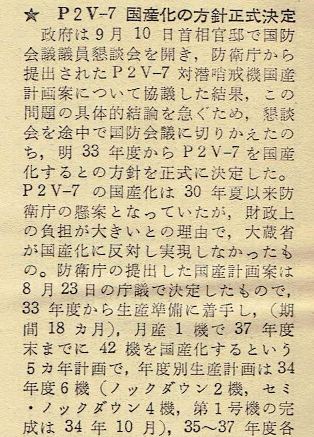 ★ P2V-7 国産化の方針正式決定
政府は9月10日首相官邸で国防
会議議員懇談会を開き、防衛庁から
提出されたP2V-7対潜哨戒機国産
計画案について協議した結果、この
問題の具体的結論を急ぐため、懇談
会を途中で国防会議に切りかえたの
ち、明33年度からP2V-7を国産
化するとの方針を正式に決定した。
P2V-7の国産化は30年夏以来防
衛庁の懸案となっていたが、財政上
の負担が大きいとの理由で、大蔵省
が国産化に反対し実現しなかったも
の。防衛庁の提出した国産計画案は
8月23日の庁議で決定したもので、
33年度から生産準備に着手し、(期
間18ヵ月)、月産1機で37年度
末までに42機を国産化するという
5ヵ年計画で、年度別生産計画は34
年度6機(ノックダウン2機、セミ
・ノックダウン4機、第1号機の完
成は34年10月)、35~37年度各